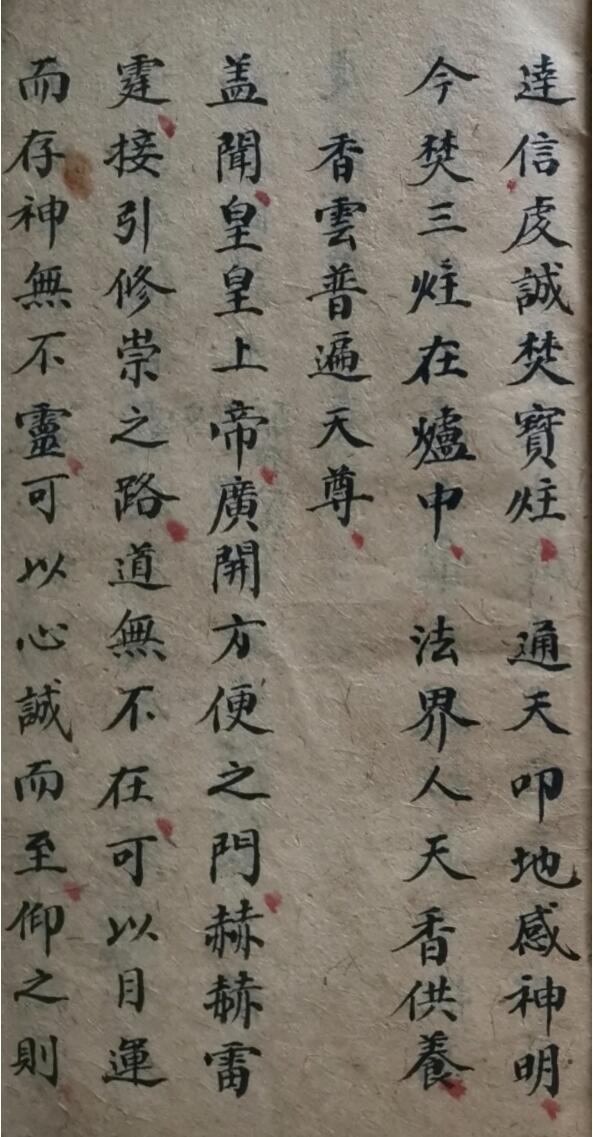 達信虔誠焚寶炷 通天叩地感神明
今焚三炷在爐中 法界人天香供養
香雲普遍天尊
盖聞皇皇上帝廣開方便之門赫赫雷
霆接引修崇之路道無不在可以目運
而存神無不靈可以心誠而至仰之則